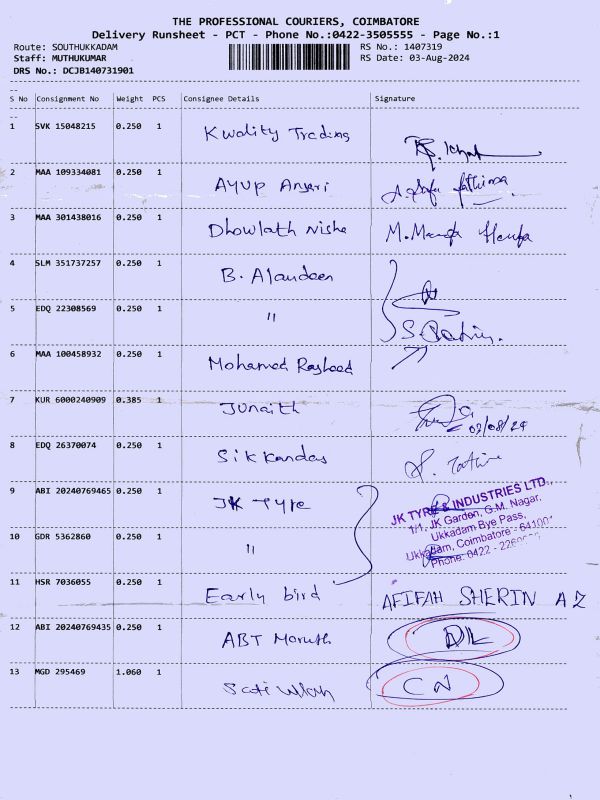 THE PROFESSIONAL COURIERS, COIMBATORE
Delivery Runsheet - PCT - Phone No.:0422-3505555 - Page No.:1
Route: SOUTHUKKADAM RS No.: 1407319
Staff: MUTHUKUMAR RS Date: 03-Aug-2024
DRS No.: DCJB140731901
S No Consignment No Weight PCS Consignee Details Signature
1 SVK 15048215 0.250 1 Kwality Trading
2 MAA 109334081 0.250 1 AYUP Ansari
3 MAA 301438016 0.250 1 Dhowlath Nisha
4 SLM 351737257 0.250 1 B. Alaudeen
5 EDQ 22308569 0.250 1 "
6 MAA 100458932 0.250 1 Mohamed Rasheed
7 KUR 6000240909 0.385 1 Junaith 03/08/24
8 EDQ 26370074 0.250 1 Sikkandas
9 ABI 20240769465 0.250 1 JK Tyre
JK TYRE & INDUSTRIES LTD.,
1/1, JK Garden, G.M. Nagar,
Ukkadam Bye Pass,
Ukkadam, Coimbatore - 641001
Phone: 0422 -
10 GDR 5362860 0.250 1 "
11 HSR 7036055 0.250 1 Early bird AFIFAH SHERIN A Z
12 ABI 20240769435 0.250 1 ABT Maruth DK
13 MGD 295469 1.060 1 CN